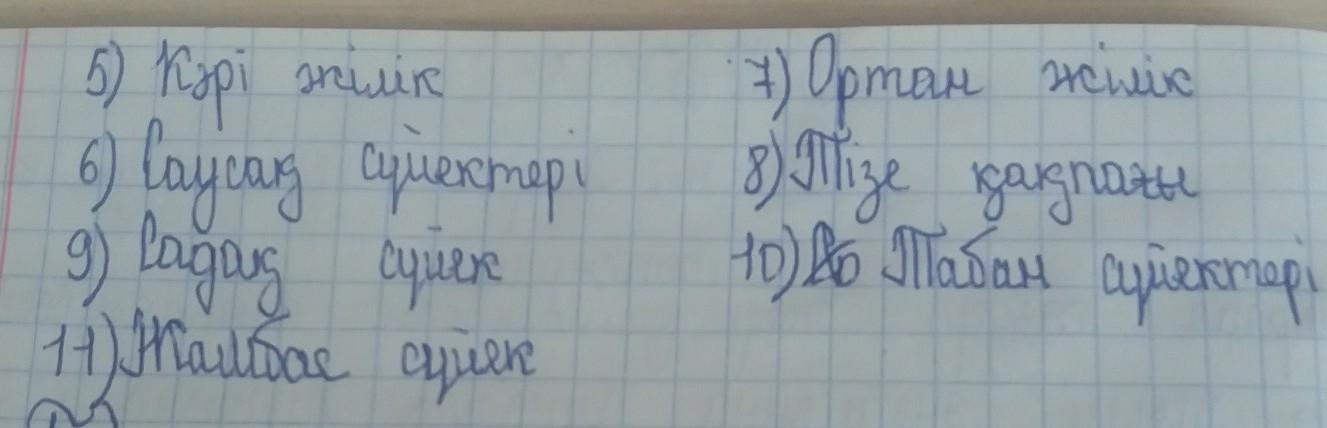 5) Кәрі жілік 7) Ортан жілік
6) Саусақ сүйектері 8) Тізе қақпағы
9) Садақ сүйек 10) Табан сүйектері
11) Жамбас сүйек